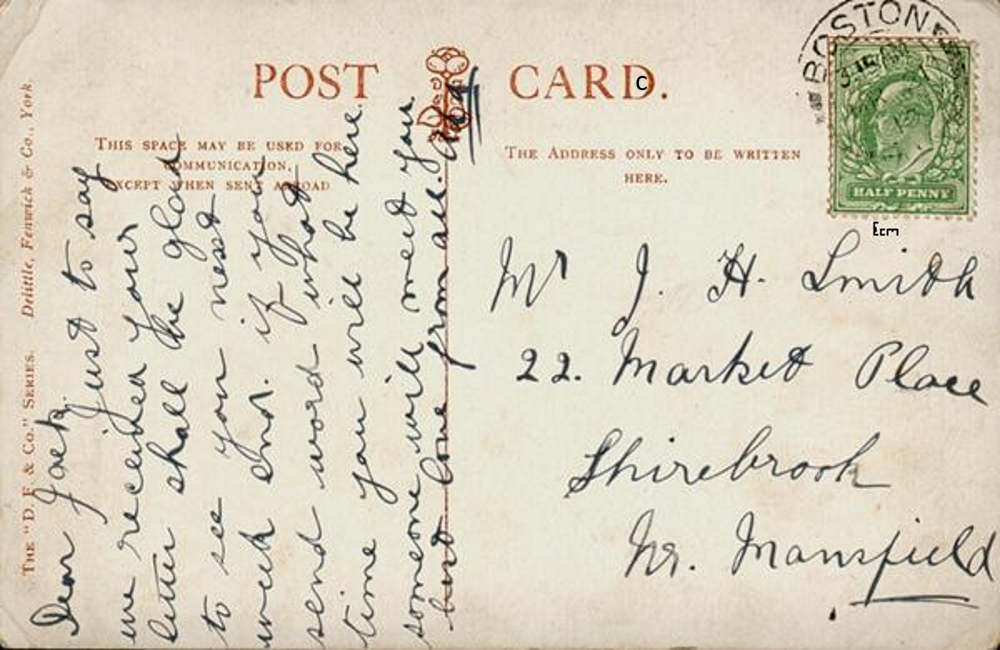 POST CARD.
C
THIS SPACE MAY BE USED FOR
COMMUNICATION,
EXCEPT WHEN SENT ABROAD
THE ADDRESS ONLY TO BE WRITTEN
HERE.
THE "D. F. & Co." SERIES. Delittle, Fenwick & Co., York.
BOSTON
HALF PENNY
Ecm
Dear Jack. Just to say
we received your
letter shall be glad
to see you next
week end. if you
send word what
time you will be here
someone will meet you
best love from all.
Mr J. H. Smith
22. Market Place
Shirebrook
Nr. Mansfield